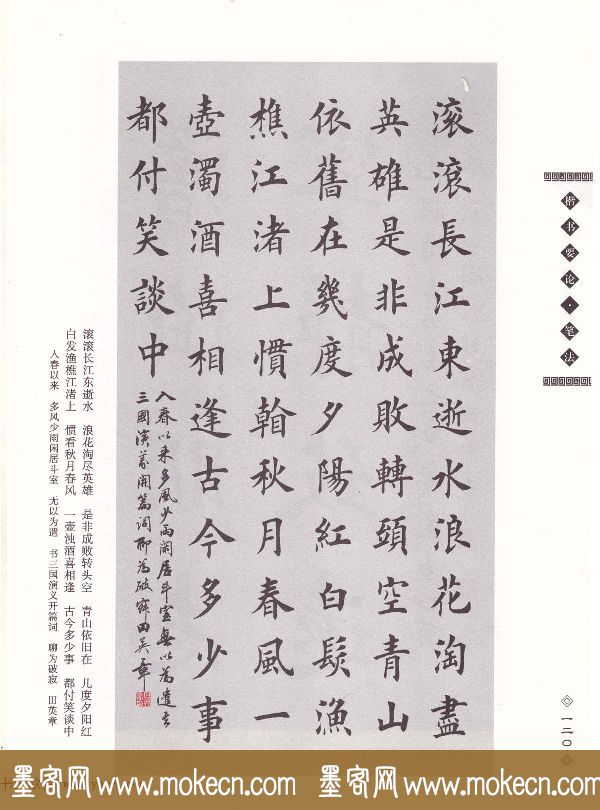 楷书要论·笔法
一二〇
滚滾長江東逝水浪花淘盡
英雄是非成敗轉頭空青山
依舊在幾度夕陽紅白髮漁
樵江渚上慣看秋月春風一
壺濁酒喜相逢古今多少事
都付笑談中
入春以来多風少雨閑居斗室無以為遣書
三國演義開篇詞聊為破寂田英章
滚滚长江东逝水 浪花淘尽英雄 是非成败转头空 青山依旧在 几度夕阳红
白发渔樵江渚上 惯看秋月春风 一壶浊酒喜相逢 古今多少事 都付笑谈中
入春以来 多风少雨闲居斗室 无以为遣 书三国演义开篇词 聊为破寂 田英章
墨客网 www.mokecn.com 墨客网 www.mokecn.com